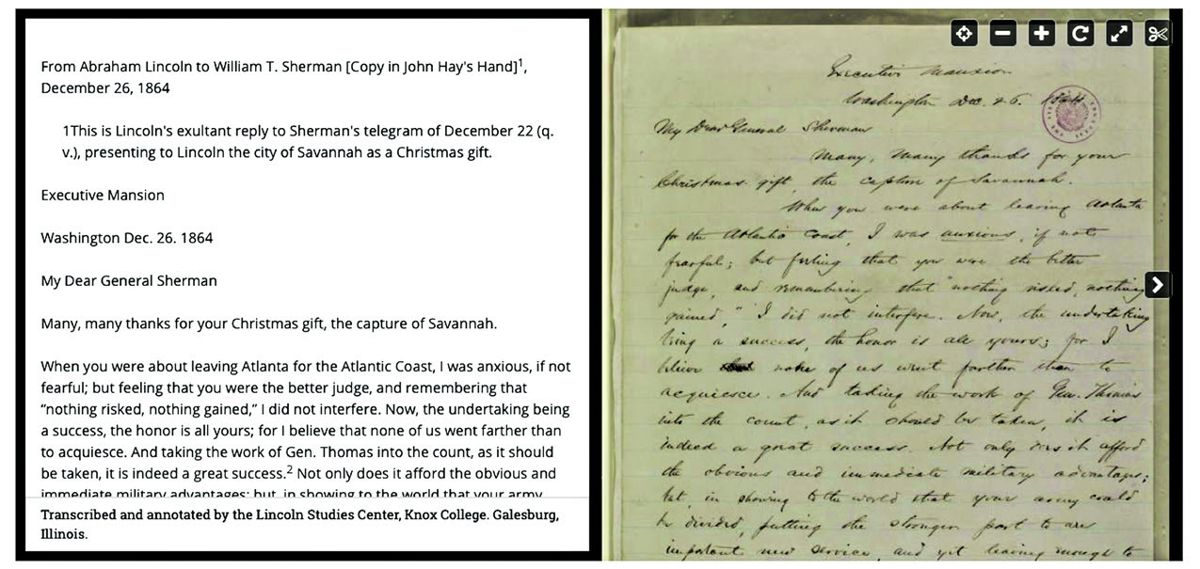 From Abraham Lincoln to William T. Sherman [Copy in John Hay's Hand]1,
December 26, 1864
1This is Lincoln's exultant reply to Sherman's telegram of December 22 (q.
v.), presenting to Lincoln the city of Savannah as a Christmas gift.
Executive Mansion
Washington Dec. 26. 1864
My Dear General Sherman
Many, many thanks for your Christmas gift, the capture of Savannah.
When you were about leaving Atlanta for the Atlantic Coast, I was anxious, if not
fearful; but feeling that you were the better judge, and remembering that
“nothing risked, nothing gained,” I did not interfere. Now, the undertaking being
a success, the honor is all yours; for I believe that none of us went farther than
to acquiesce. And taking the work of Gen. Thomas into the count, as it should
be taken, it is indeed a great success.2 Not only does it afford the obvious and
immediate military advantages; but, in showing to the world that your army
Transcribed and annotated by the Lincoln Studies Center, Knox College. Galesburg,
Illinois.
Executive Mansion
Washington Dec. 26. 1864
My Dear General Sherman
Many, many thanks for your
Christmas gift, the capture of Savannah.
When you were about leaving Atlanta
for the Atlantic Coast, I was anxious, if not
fearful; but feeling that you were the better
judge, and remembering that "nothing risked, nothing
gained," I did not interfere. Now, the undertaking
being a success, the honor is all yours; for I
believe none of us went farther than to
acquiesce. And taking the work of Gen. Thomas
into the count, as it should be taken, it is
indeed a great success. Not only does it afford
the obvious and immediate military advantages;
but, in showing to the world that your army could
be divided, putting the stronger part to an
important new service, and yet leaving enough to